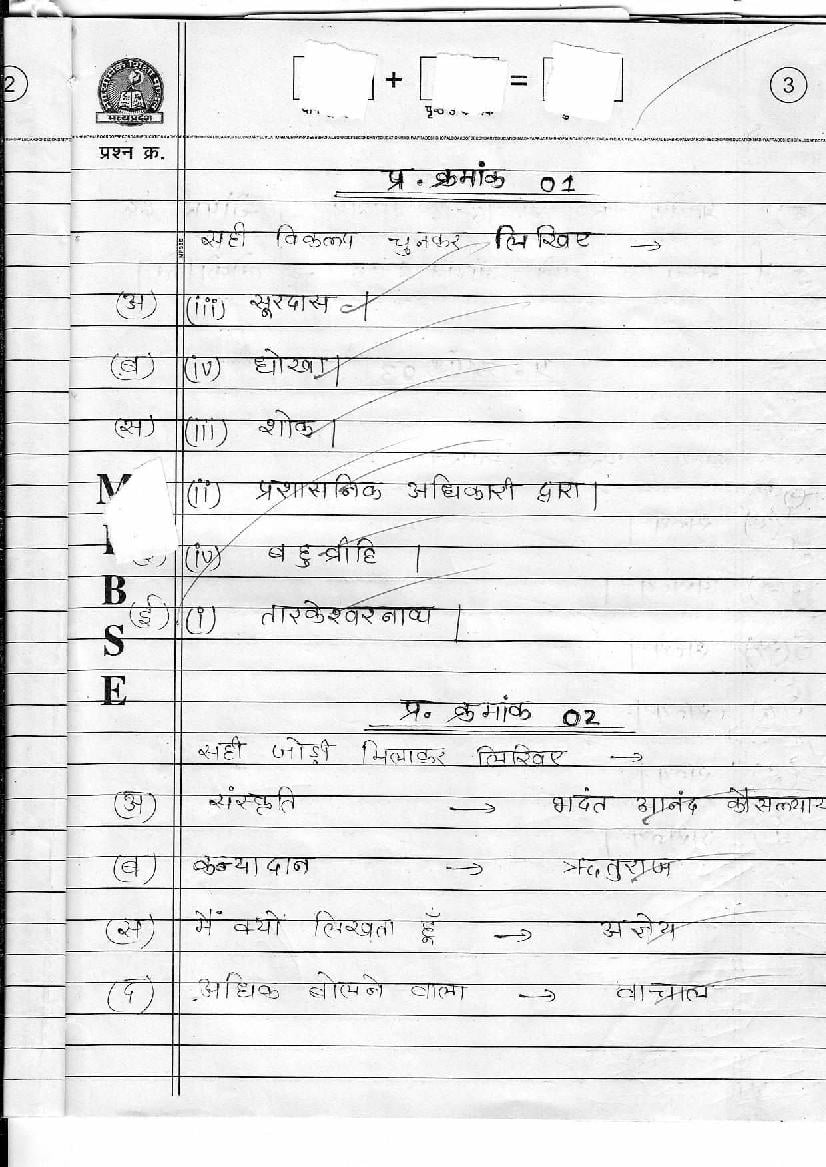 2
मध्यप्रदेश
+ =
3
प्रश्न क्र.
प्र. क्रमांक 01
सही विकल्प चुनकर लिखिए →
(अ) (iii) सूरदास ।
(ब) (iv) धोखा।
(स) (iii) शोक।
(ii) प्रशासनिक अधिकारी द्वारा।
(iv) बहुव्रीहि ।
(ई) (i) तारकेश्वरनाथ ।
M
B
S
E
प्र. क्रमांक 02
सही जोड़ी मिलाकर लिखिए →
(अ) संस्कृति → भदंत आनंद कौसल्याय
(ब) कन्यादान → ऋतुराज
(स) मैं क्यों लिखता हूँ → अज्ञेय
(द) अधिक बोलने वाला → वाचाल